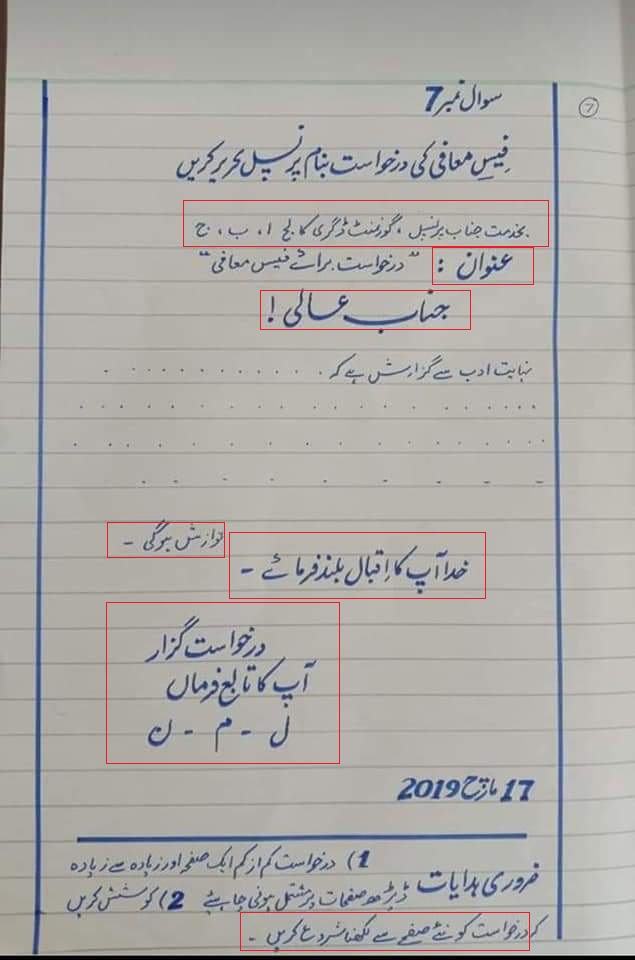 7
سوال نمبر 7
فیس معافی کی درخواست بنام پرنسپل تحریر کریں
بخدمت جناب پرنسپل ، گورنمنٹ ڈگری کالج ا ، ب ، ج
عنوان : "درخواست برائے فیس معافی"
جناب عالی !
نہایت ادب سے گزارش ہے کہ . . . . . . . . . . .
نوازش ہوگی ۔
خدا آپ کا اِقبال بلند فرمائے ۔
درخواست گزار
آپ کا تابع فرماں
ل ۔ م ۔ ن
17 مارچ 2019
1) درخواست کم از کم ایک صفحہ اور زیادہ سے زیادہ
ضروری ہدایات ڈیڑھ صفحات پر مشتمل ہونی چاہیئے 2) کوشش کریں
کہ درخواست کو نئے صفحے سے لکھنا شروع کریں ۔